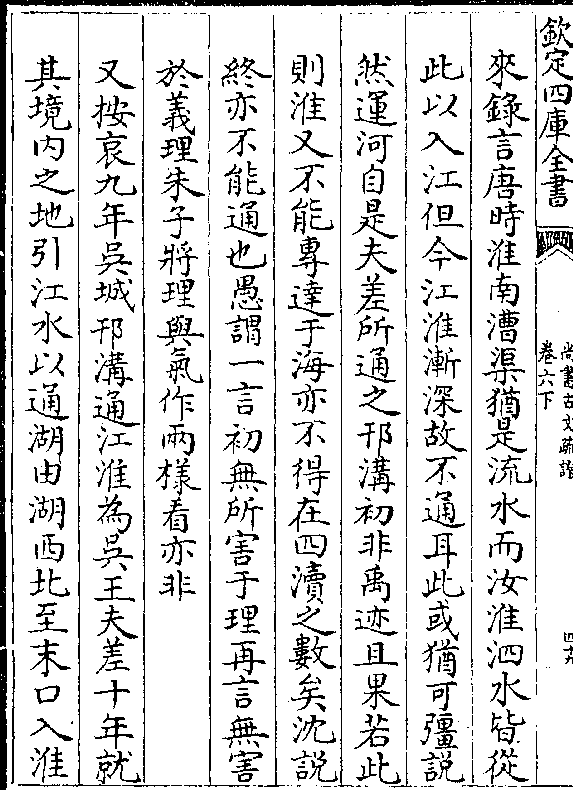 欽定四庫全書
尚書古文疏證
卷六下
四九
來錄言唐時淮南漕渠猶是流水而汝淮泗水皆從
此以入江但今江淮漸深故不通耳此或猶可彊說
然運河自是夫差所通之邗溝初非禹迹且果若此
則淮又不能專達于海亦不得在四瀆之數矣沈說
終亦不能通也愚謂一言初無所害于理再言無害
於義理朱子將理與氣作兩樣看亦非
又按哀九年吳城邗溝通江淮為吳王夫差十年就
其境内之地引江水以通湖由湖西北至末口入淮